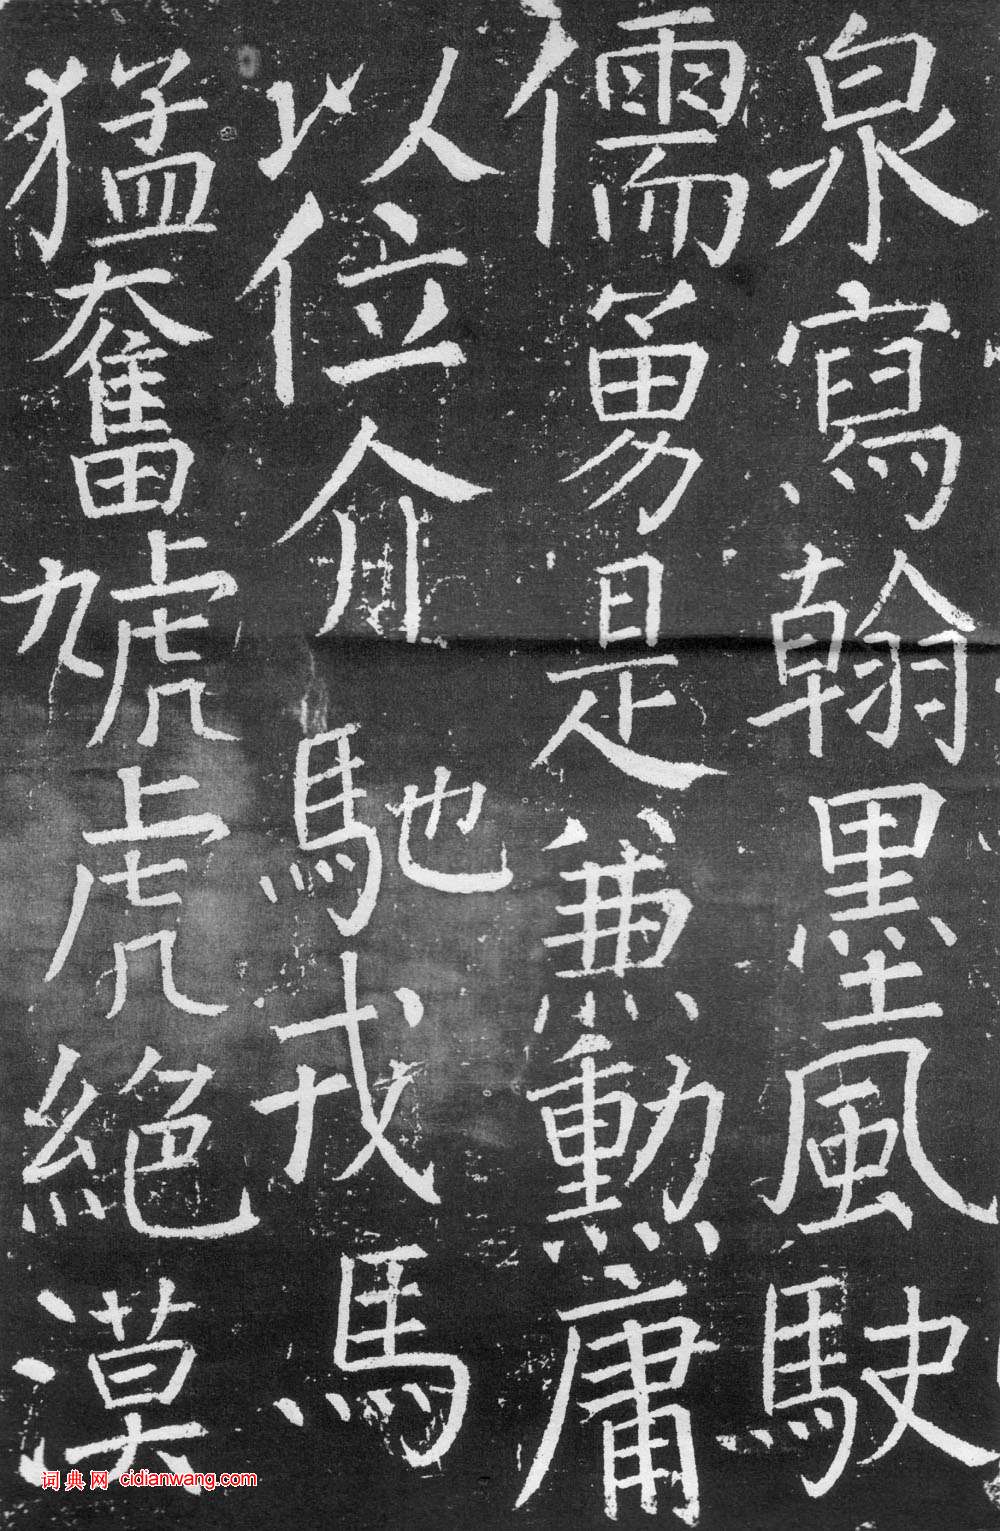 泉寫翰墨風駛
儒勇是兼勳庸
以位介馳戎馬
猛奮虓虎絕漠
词典网 cidianwang.com